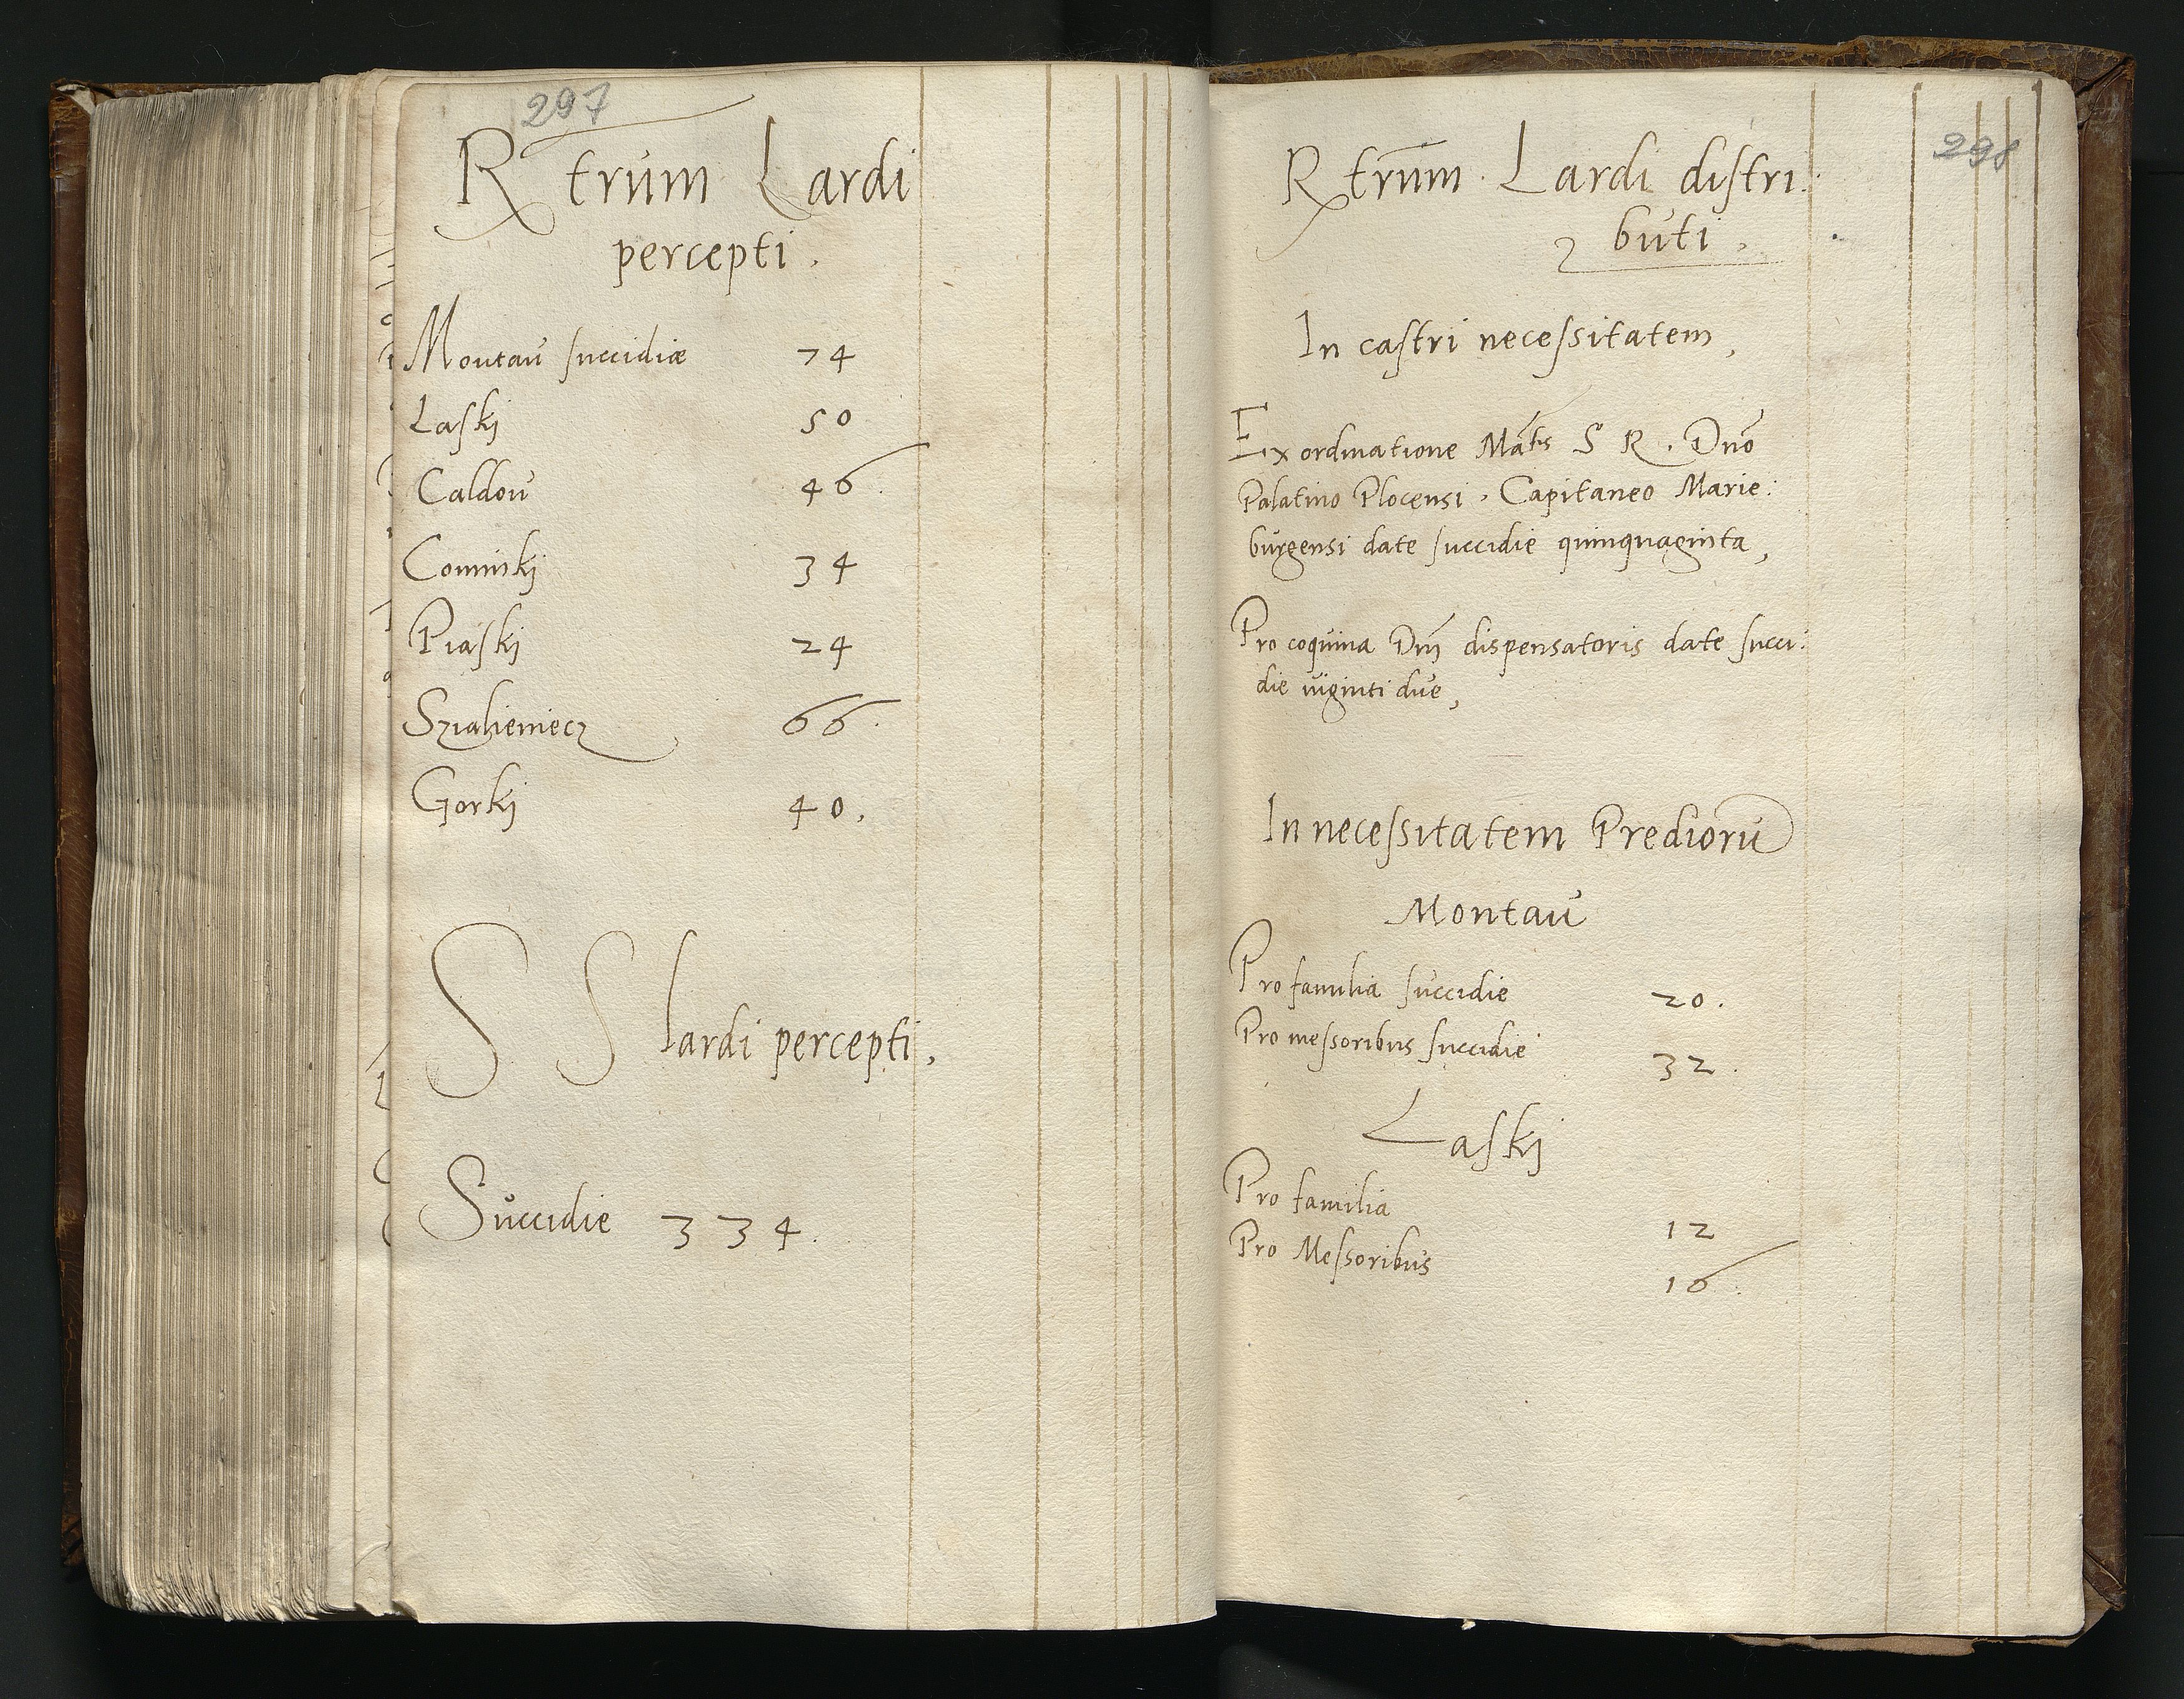 297
Rtrum Lardi
percepti.
Montau succidiæ 74
Laski 50
Caldou 46.
Cominski 34
Piaski 24
Szialieniecz 66.
Gorki 40.
S S lardi percepti,
Succidie 334.
298
Rtrum Lardi distri:
buti,
In castri necessitatem,
Ex ordinatione Matis S R. Dno
Palatino Plocensi. Capitaneo Marie:
burgensi date succidie quinquaginta,
Pro coquina Dni dispensatoris date succi:
die uiginti due,
In necessitatem Predioru
Montau
Pro familia succidie 20.
Pro messoribus succidie 32.
Laski
Pro familia 12
Pro Messoribus 16.